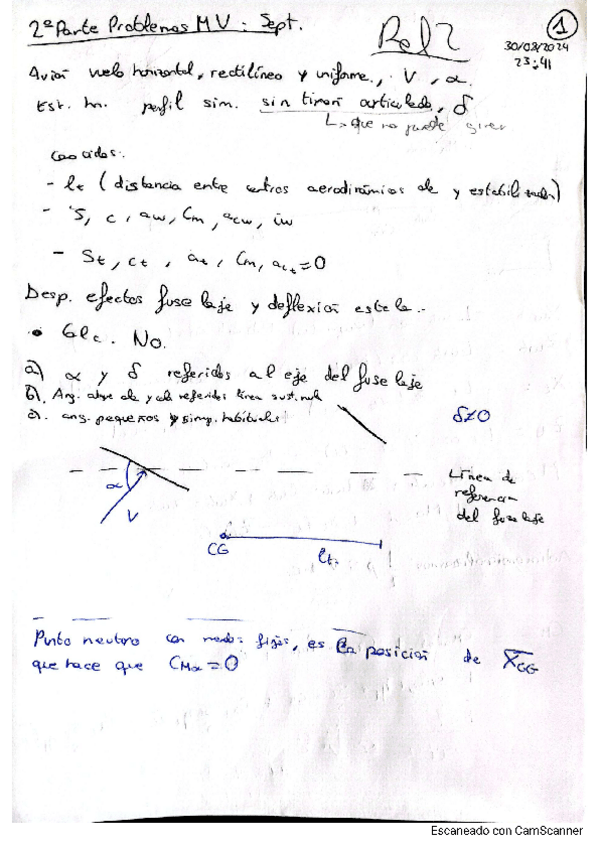 2ª Parte Problemas M V : Sept.
Rel 2
1
30/08/2024
23:41
Avión vuelo horizontal, rectilíneo y uniforme., V, α.
Est. hor. perfil sim. sin timón articulado, δ
L> que no puede girar
Conocidos:.
- lt (distancia entre centros aerodinámicos ala y estabilizador)
- S, c, aw, Cm,acw, iw
- St, ct, at, Cm,act = 0
Desp. efectos fuselaje y deflexión estela..
• No.
a) α y δ referidos al eje del fuselaje
b). Ang. ataque ala y referidos línea sust. nula
c). ang. pequeños y simp. habituales
δ≠0
α
V
Línea de
referencia
del fuselaje
CG
lt.
Punto neutro con mandos fijos, es la posición de X̄CG
que hace que CMα = 0
Escaneado con CamScanner